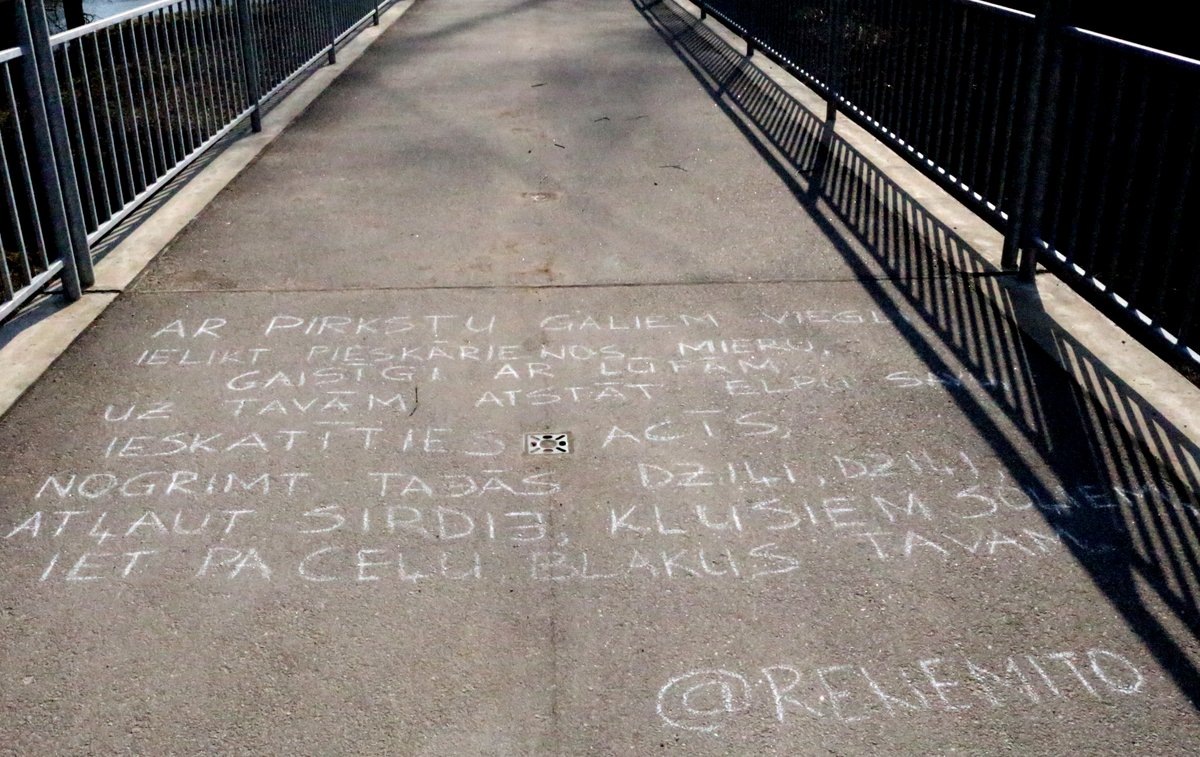 AR PIRKSTU GALIEM VIEGLI
IELIKT PIESKĀRIENOS MIERU,
GAISTGI AR LŪPĀM
UZ TAVĀM ATSTĀT ELPU SAVU,
IESKATĪTIES ACĪS,
NOGRIMT TAJĀS DZIĻI, DZIĻI,
ATĻAUT SIRDIJ, KLUSIEM SOĻIEM
IET PA CEĻU BLAKUS TAVAM
@RENEMITO